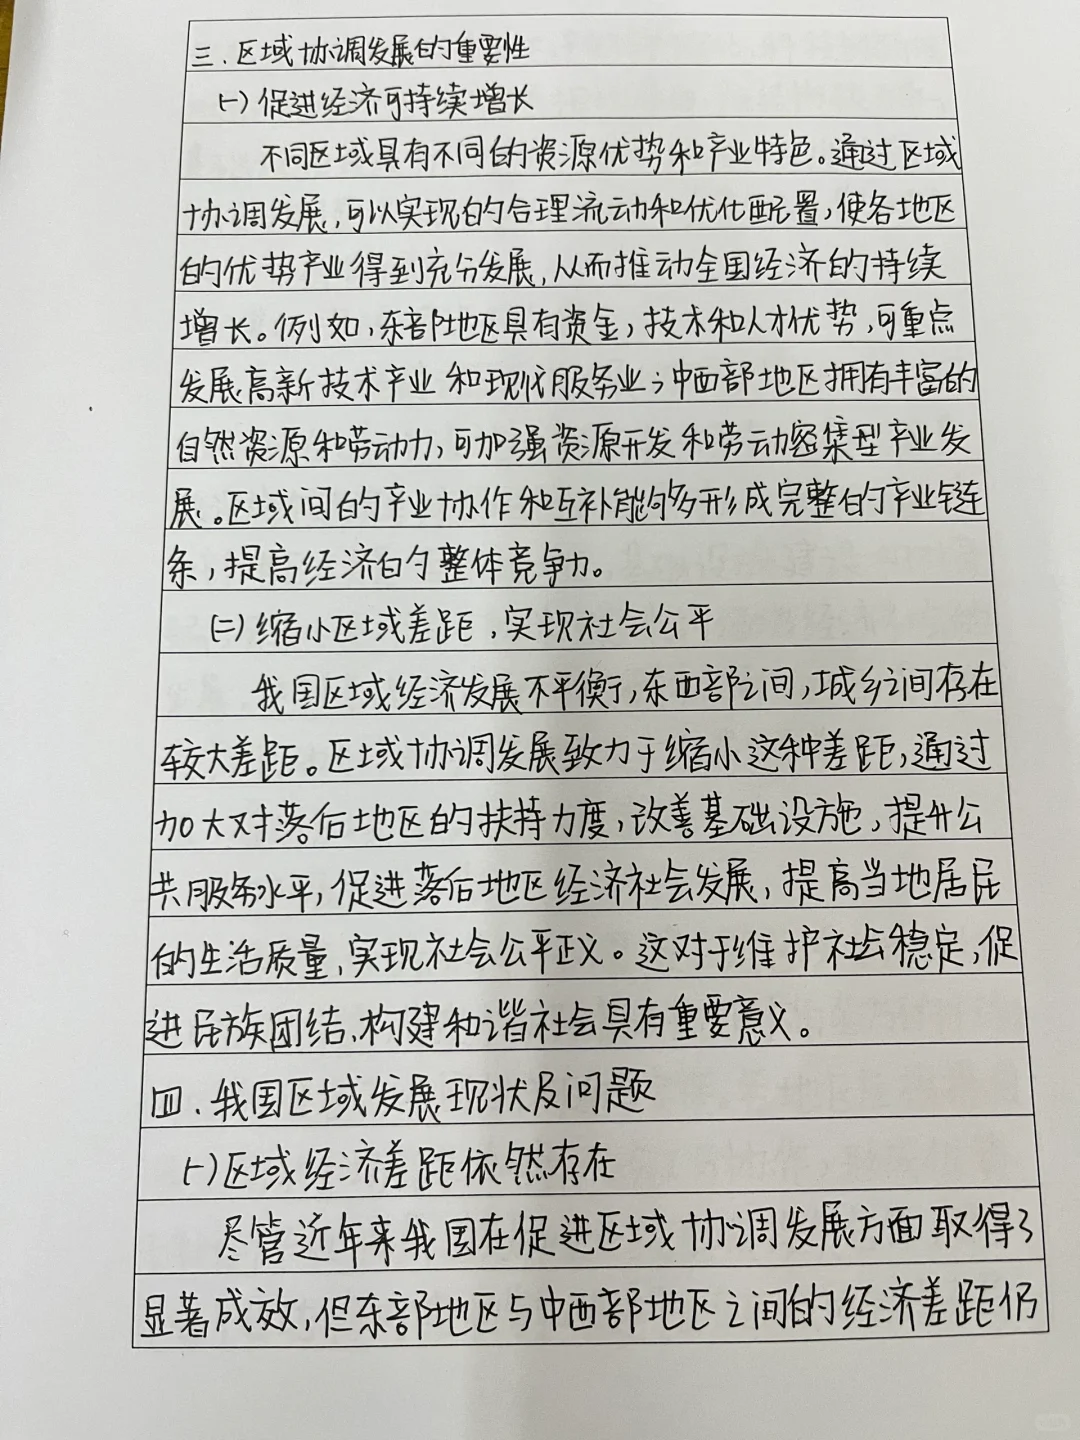 三.区域协调发展的重要性
(一)促进经济可持续增长
不同区域具有不同的资源优势和产业特色。通过区域
协调发展,可以实现的合理流动和优化配置,使各地区
的优势产业得到充分发展,从而推动全国经济的持续
增长。例如,东部地区具有资金,技术和人才优势,可重点
发展高新技术产业和现代服务业;中西部地区拥有丰富的
自然资源和劳动力,可加强资源开发和劳动密集型产业发
展。区域间的产业协作和互补能够形成完整的产业链
条,提高经济的整体竞争力。
(二)缩小区域差距,实现社会公平
我国区域经济发展不平衡,东西部之间,城乡之间存在
较大差距。区域协调发展致力于缩小这种差距,通过
加大对落后地区的扶持力度,改善基础设施,提升公
共服务水平,促进落后地区经济社会发展,提高当地居民
的生活质量,实现社会公平正义。这对于维护社会稳定,促
进民族团结、构建和谐社会具有重要意义。
四.我国区域发展现状及问题
(一)区域经济差距依然存在
尽管近年来我国在促进区域协调发展方面取得了
显著成效,但东部地区与中西部地区之间的经济差距仍